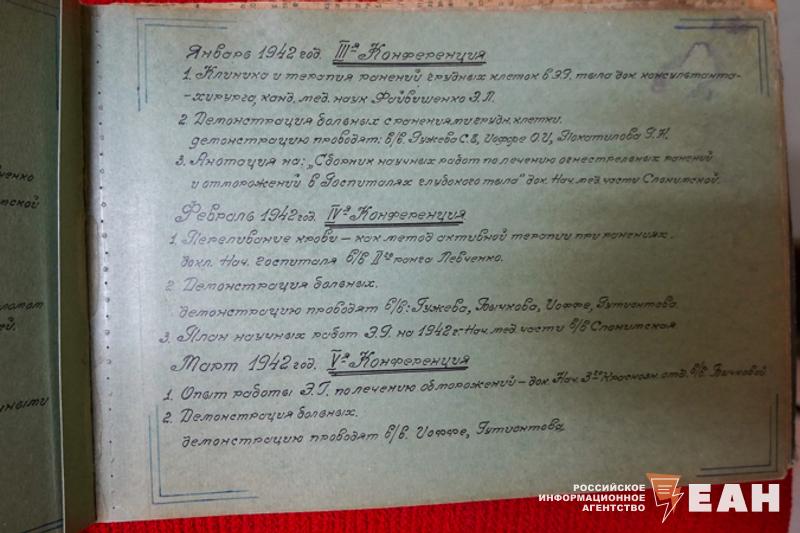 Январь 1942 год. IIIя Конференция
1. Клиника и терапия ранений грудных клеток в Э.Г. тыла док. консультанта-
-хирурга, канд. мед. наук Файвишенко Э.Л.
2. Демонстрация больных с ранениями грудн. клетки.
демонстрацию проводят: в/в. Гужева С.Е, Иоффе О.И, Покатилова Г.Н.
3. Анотация на: „Сборник научных работ по лечению огнестрельных ранений
и отморожений в Госпиталях глубокого тыла" док. Нач. мед. части Слонимской.
Февраль 1942 год. IVя Конференция
1. Переливание крови – как метод активной терапии при ранениях.
докл. Нач. госпиталя в/в IIго ранга Левченко.
2. Демонстрация больных.
демонстрацию проводят в/в: Гужева, Бычкова, Иоффе, Гутионтова.
3. План научных работ Э.Г. на 1942 г. Нач. мед. части в/в Слонимская
Март 1942 год. Vя Конференция
1. Опыт работы Э.Г. по лечению обморожений – док. Нач. 3го Краснозн. отд. в/в. Бычковой
2. Демонстрация больных.
демонстрацию проводят в/в. Иоффе, Гутионтова
РОССИЙСКОЕ
ИНФОРМАЦИОННОЕ
АГЕНТСТВО
ЕАН